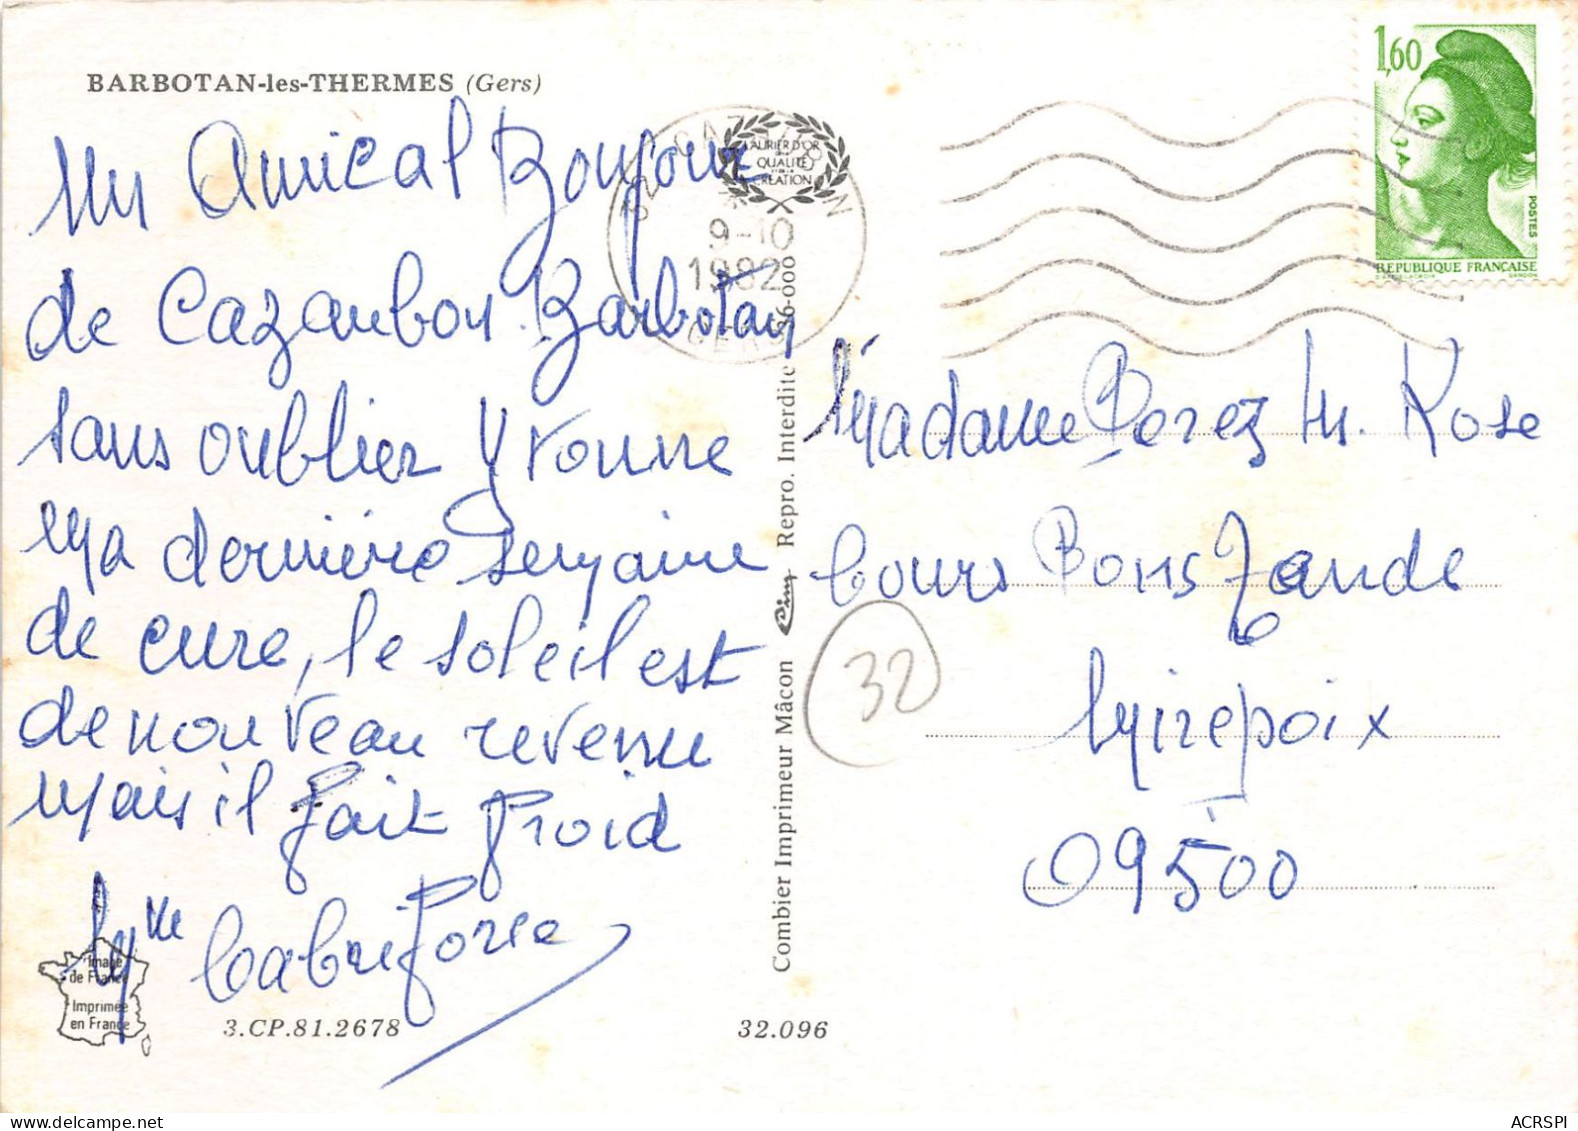 BARBOTAN-les-THERMES (Gers)
Un Amical Bonjour
de Cazaubon Barbotan
sans oublier Yvonne
Ma dernière semaine
de cure, le soleil est
de nouveau revenu
Mais il fait froid
Mme
Image
de France
Imprimée
en France
3.CP.81.2678
32.096
Combier Imprimeur Mâcon
Cim
Repro. Interdite
LAURIER D'OR
DE LA
QUALITÉ
ET DE LA
CRÉATION
32 CAZAUBON
9-10
1982
GERS
1,60
POSTES
REPUBLIQUE FRANÇAISE
D'APRÈS DELACROIX
GANDON
Madame Perez M. Rose
Cours Pons Tande
Mirepoix
09500
32
ACRSPI